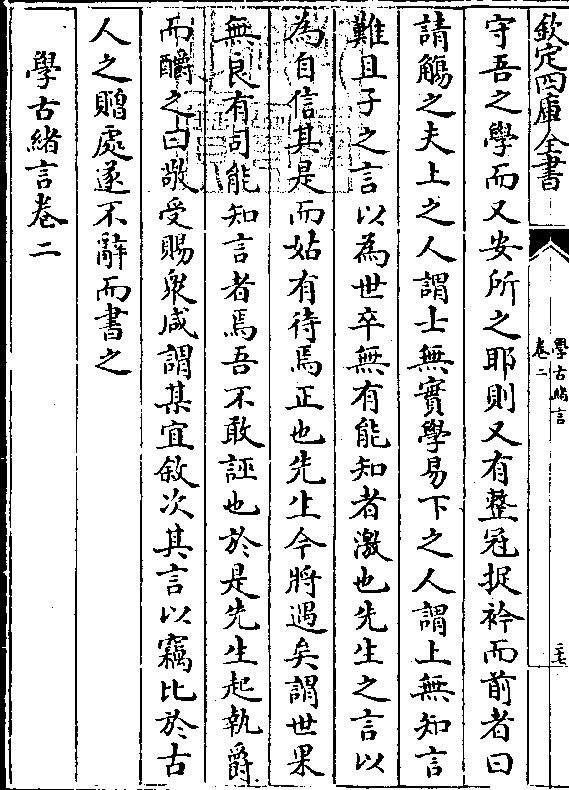 欽定四庫全書
學古緒言
卷二
二七
守吾之學而又安所之耶則又有整冠捉衿而前者曰
請觴之夫上之人謂士無實學易下之人謂上無知言
難且子之言以為世卒無有能知者激也先生之言以
為自信其是而姑有待焉正也先生今將遇矣謂世果
無良有司能知言者焉吾不敢誣也於是先生起執爵
而釂之曰敬受賜衆咸謂某宜敘次其言以竊比於古
人之贈處遂不辭而書之
學古緒言卷二